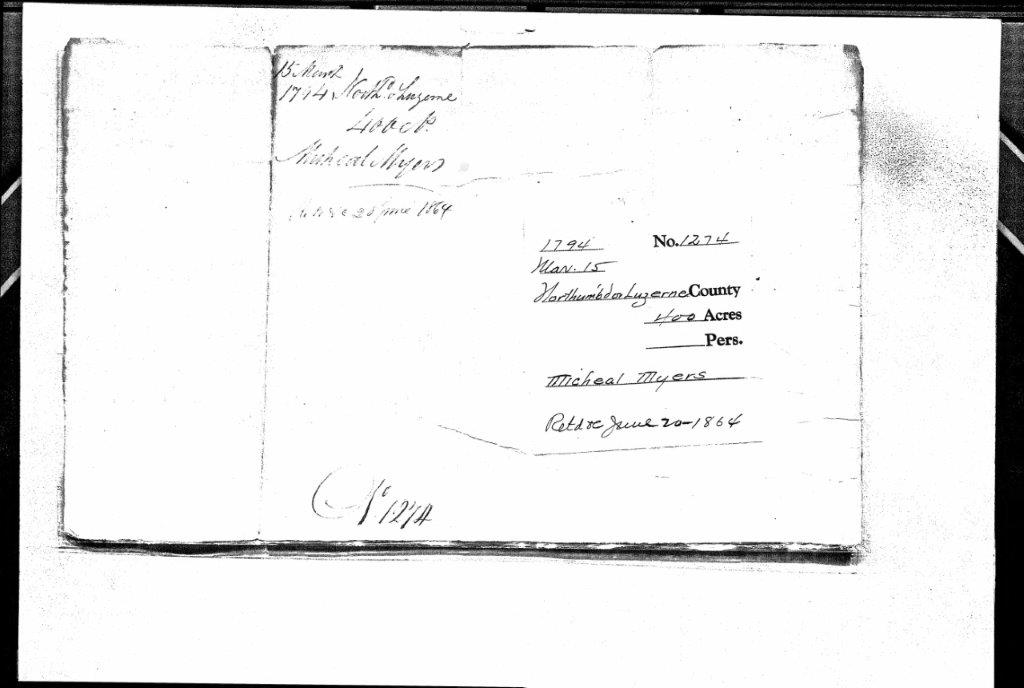 15 March
1794 North.d o Luzerne
400 A.
Micheal Myers
20 June 1864
1794 No. 1274
Mar. 15
Northumb'd or Luzerne County
400 Acres
Pers.
Micheal Myers
Retd &c June 20-1864
No 1274